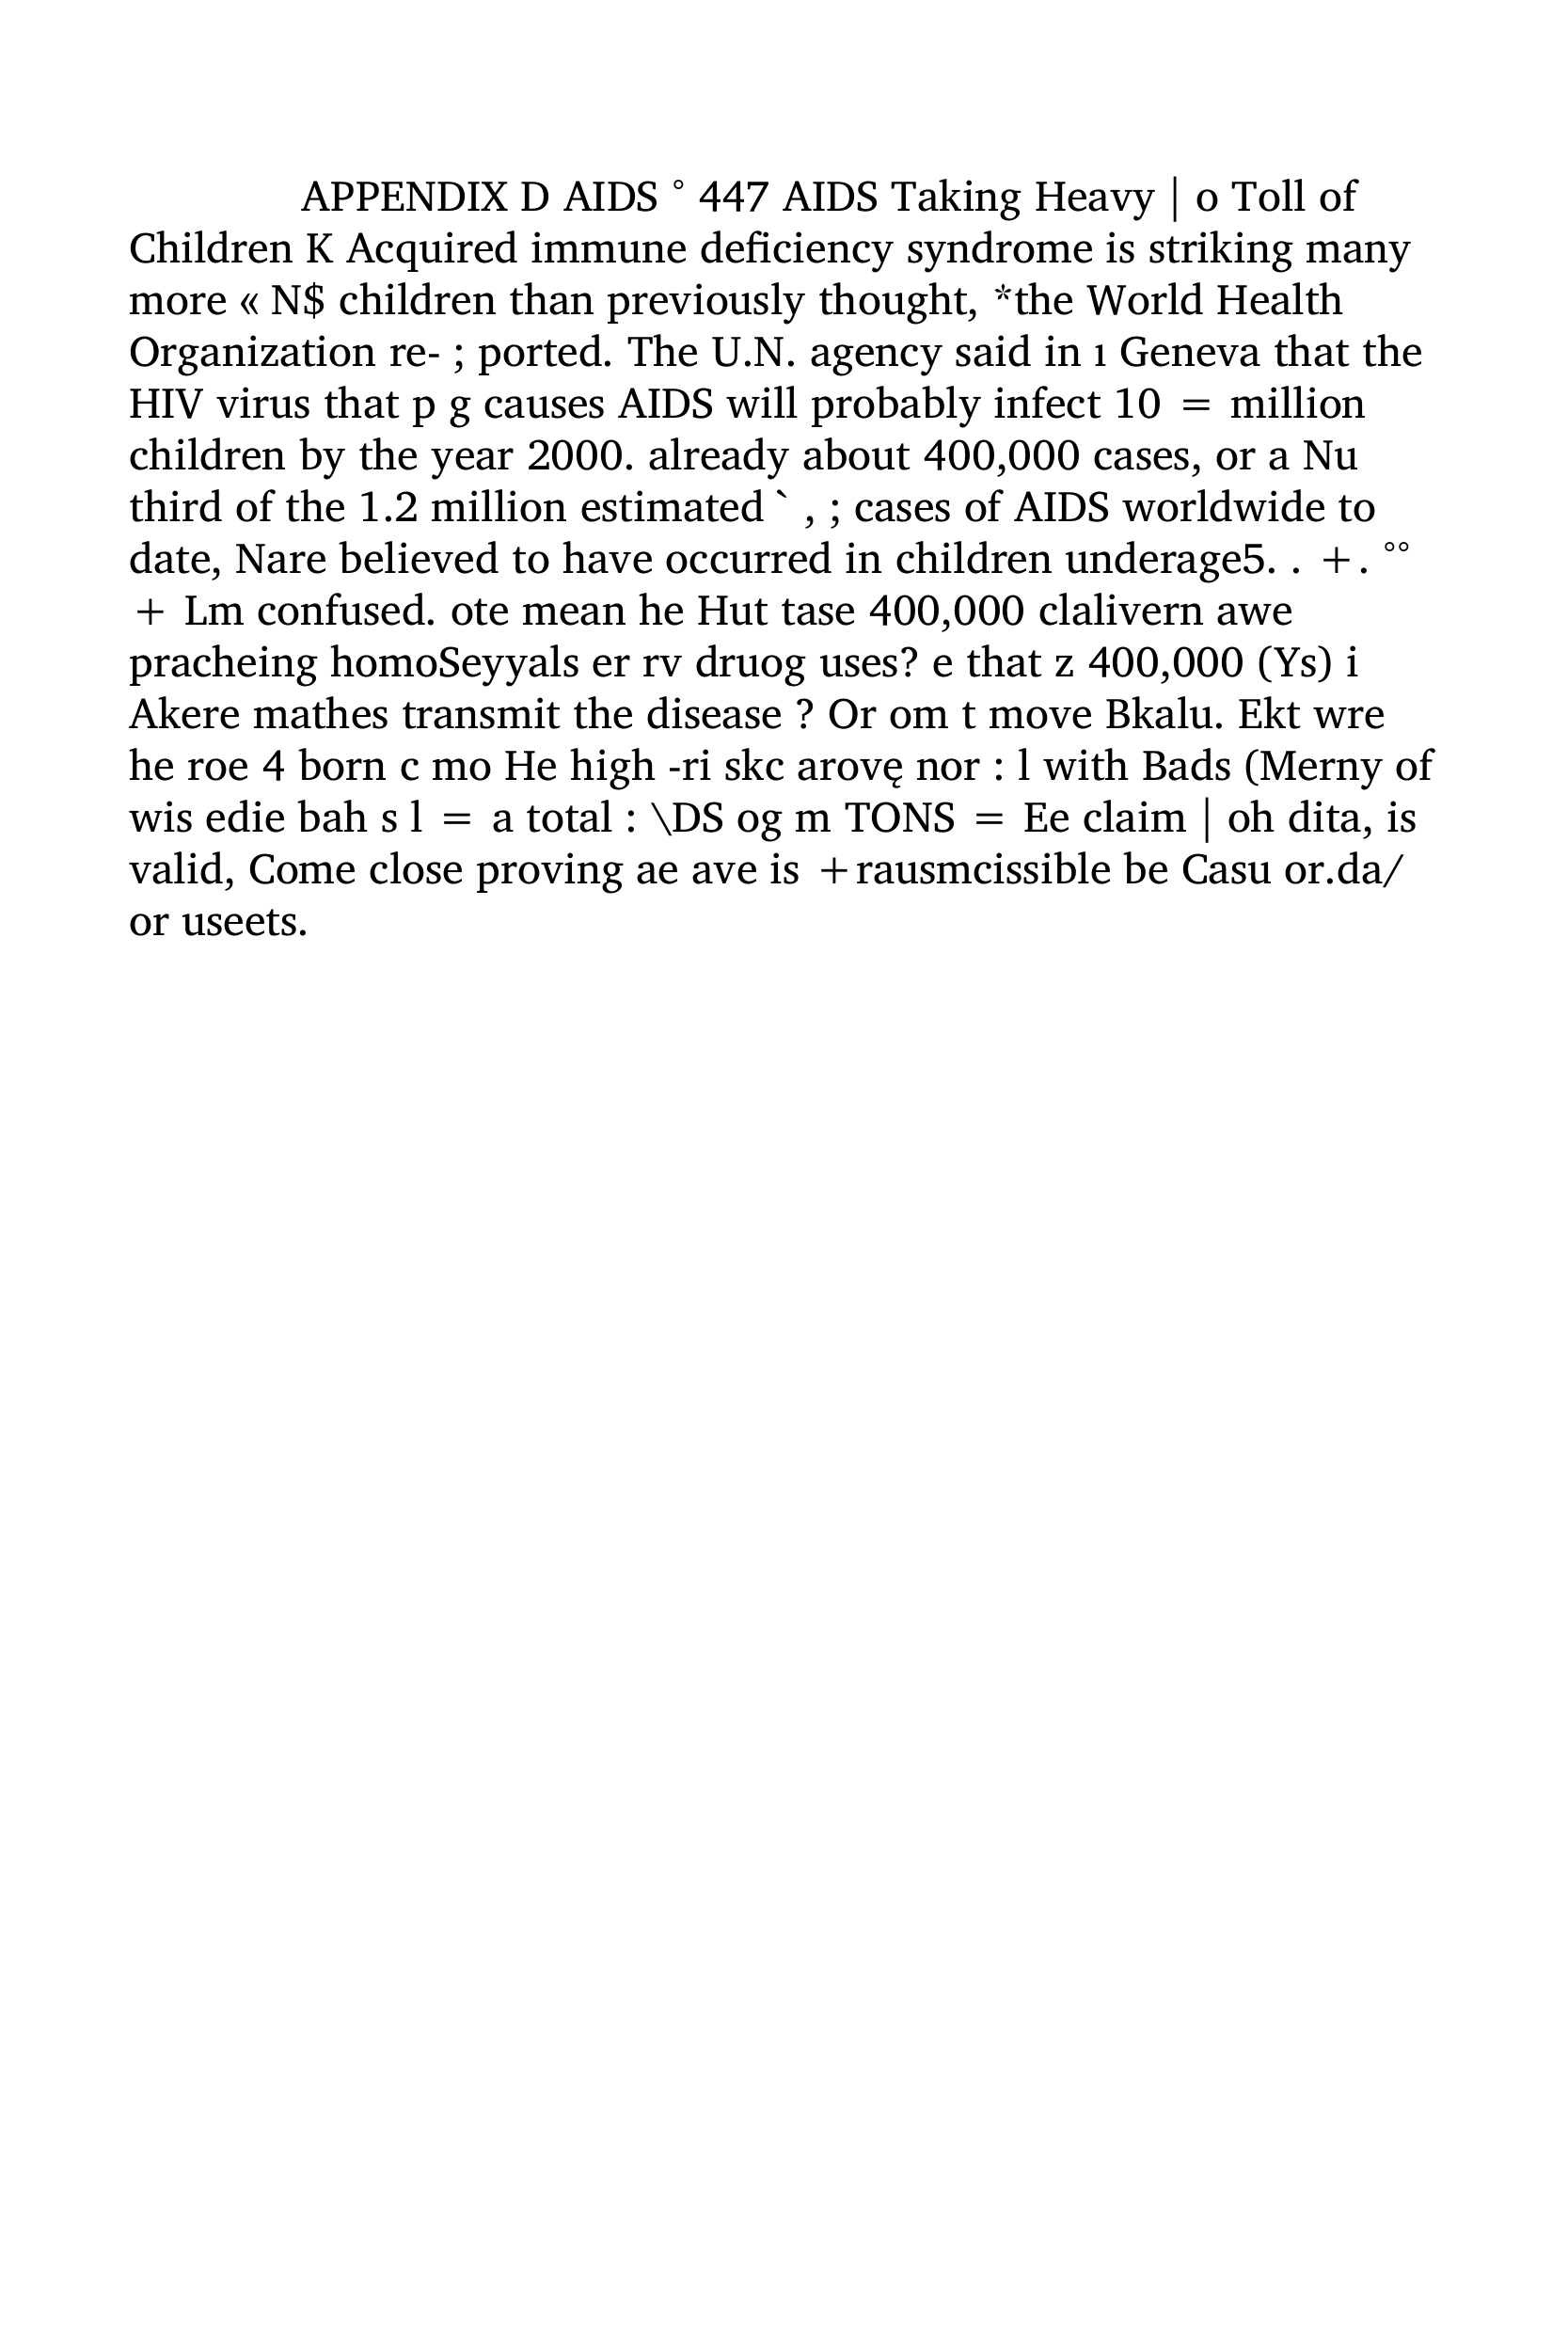 APPENDIX D AIDS ° 447 AIDS Taking Heavy | o Toll of
Children K Acquired immune deficiency syndrome is striking many
more « N$ children than previously thought, *the World Health
Organization re- ; ported. The U.N. agency said in ı Geneva that the
HIV virus that p g causes AIDS will probably infect 10 = million
children by the year 2000. already about 400,000 cases, or a Nu
third of the 1.2 million estimated ` , ; cases of AIDS worldwide to
date, Nare believed to have occurred in children underage5. . +. °°
+ Lm confused. ote mean he Hut tase 400,000 clalivern awe
pracheing homoSeyyals er rv druog uses? e that z 400,000 (Ys) i
Akere mathes transmit the disease ? Or om t move Bkalu. Ekt wre
he roe 4 born c mo He high -ri skc arovę nor : l with Bads (Merny of
wis edie bah s l = a total : \DS og m TONS = Ee claim | oh dita, is
valid, Come close proving ae ave is +rausmcissible be Casu or.da/
or useets.